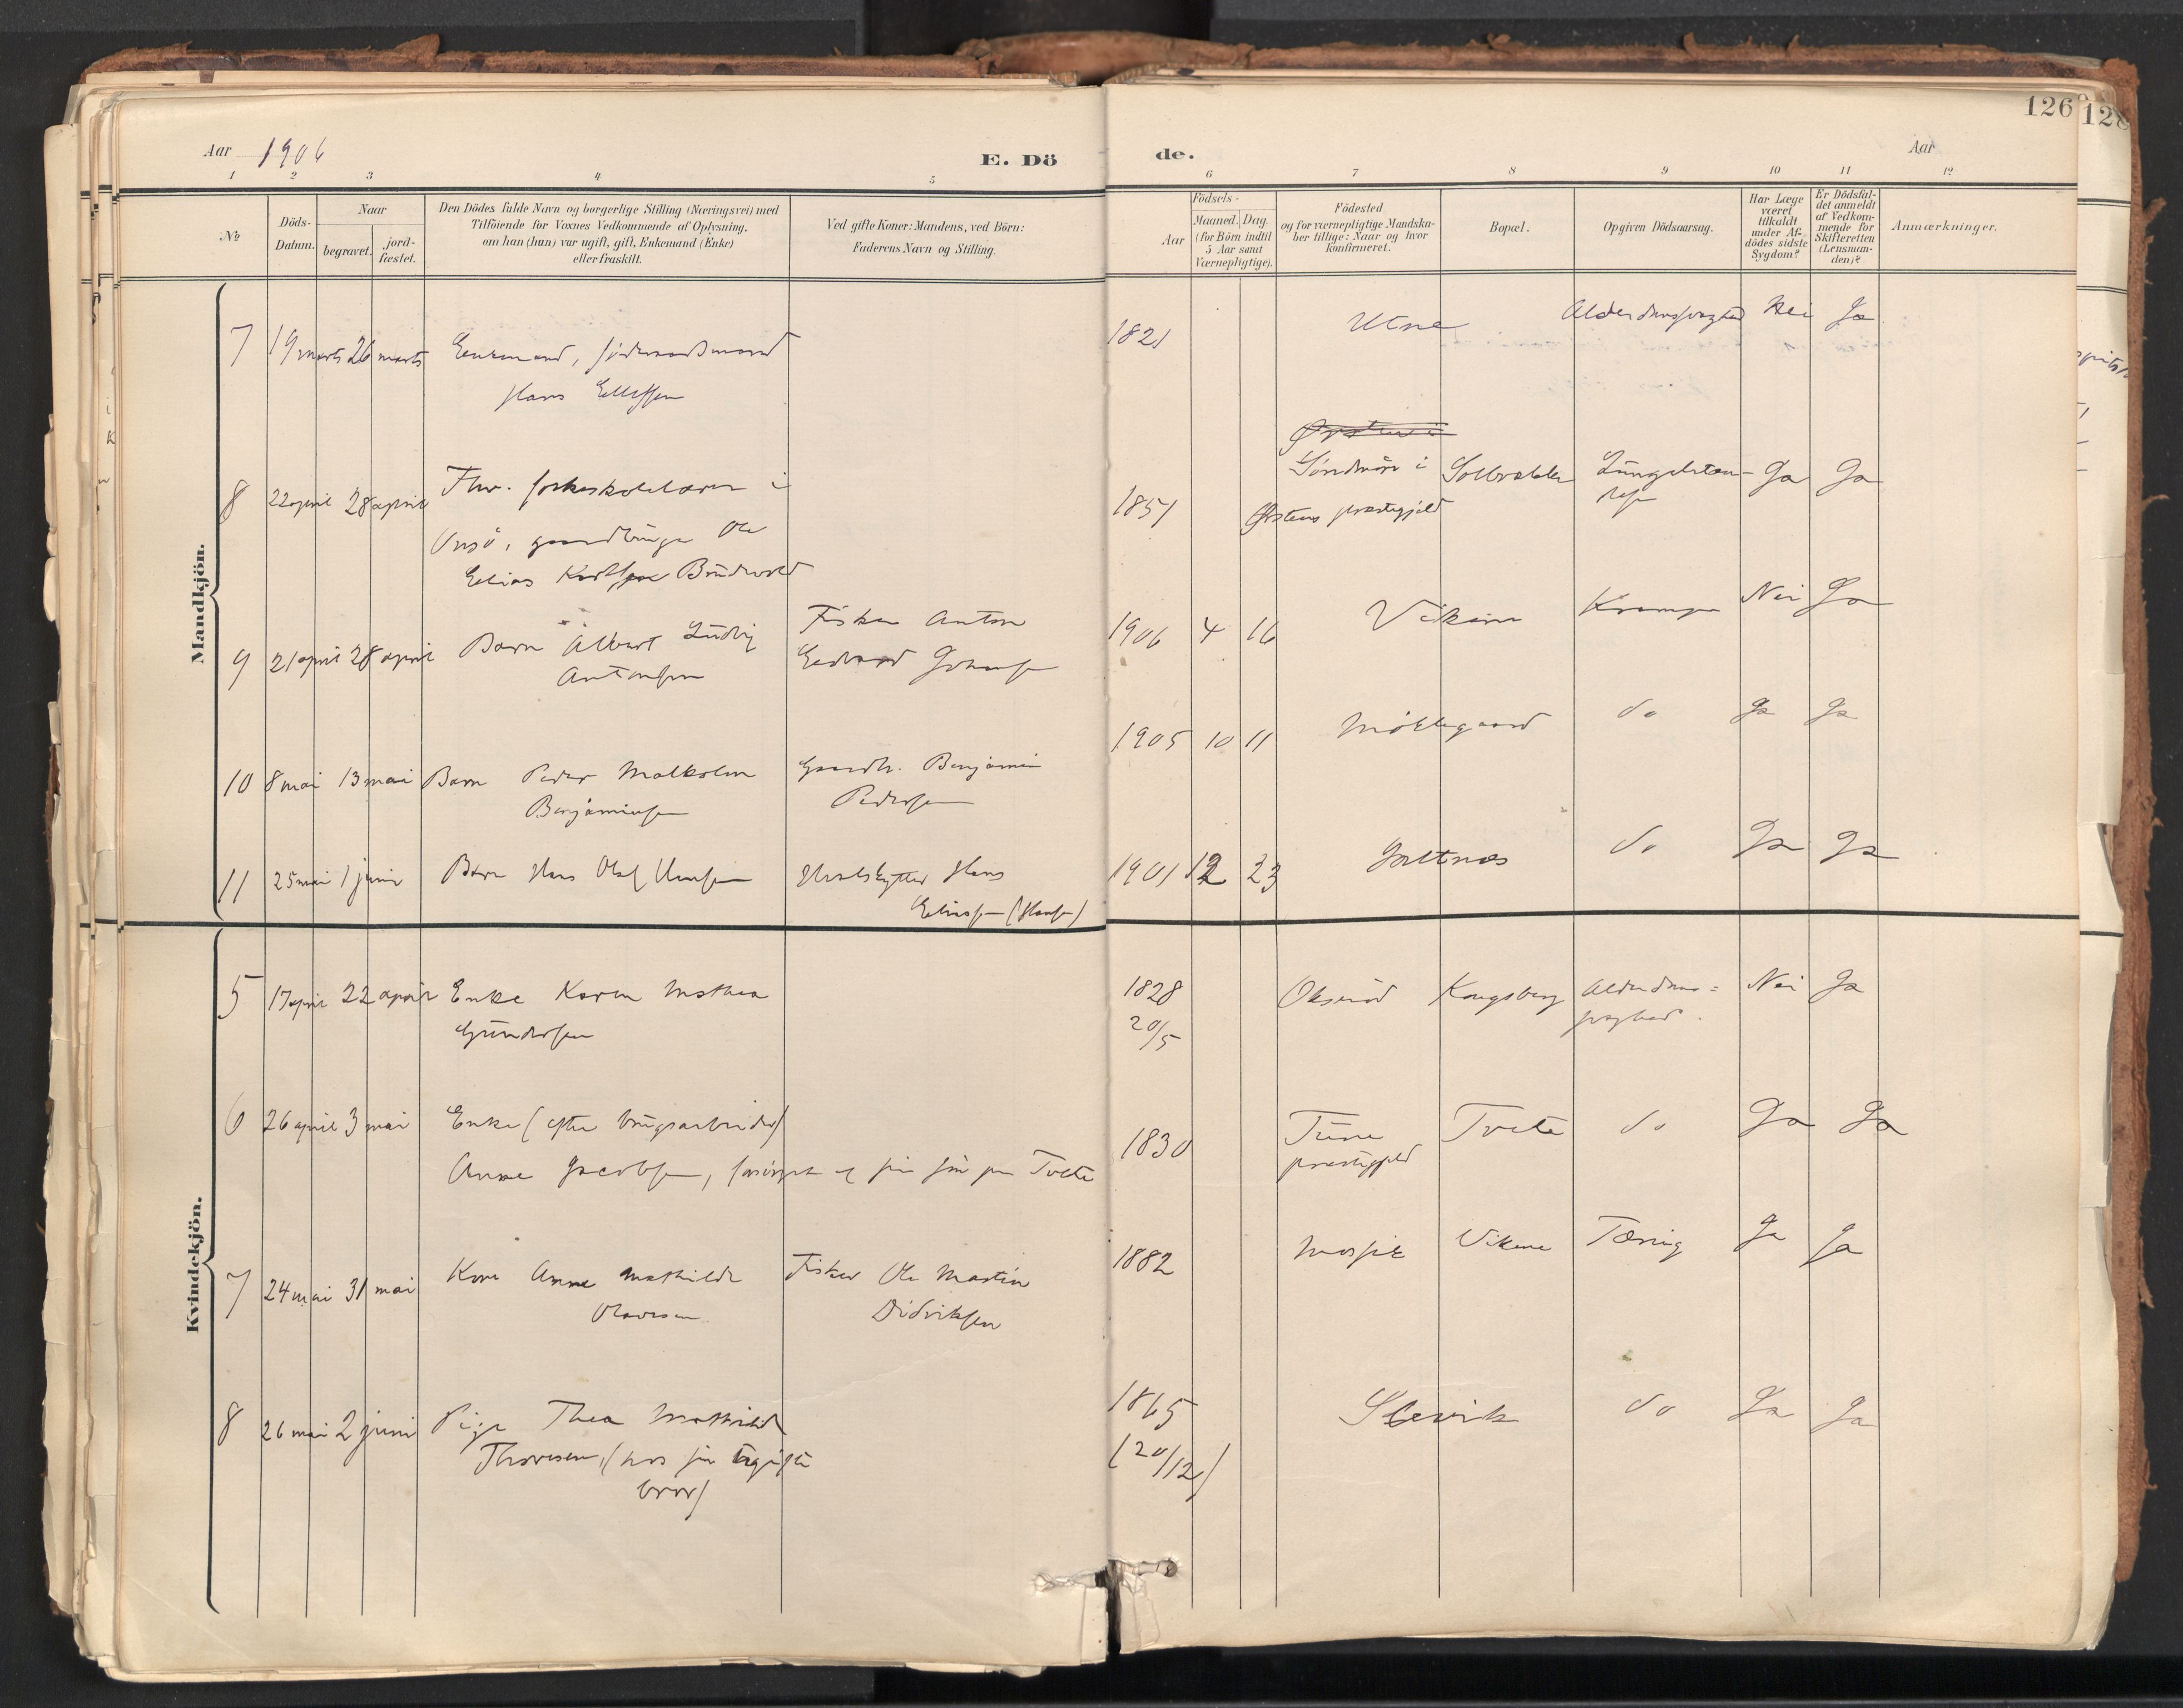 126
128
Aar 1906
E. Dö
de.
Aar
1 2 3 4 5 6 7 8 9 10 11 12
No
Döds-Datum.
Naar
begravet.
jord-fæstet.
Den Dödes fulde Navn og borgerlige Stilling (Næringsvei) med
Tilföiende for Voxnes Vedkommende af Oplysning,
om han (hun) var ugift, gift, Enkemand (Enke)
eller fraskilt.
Ved gifte Koner: Mandens, ved Börn:
Faderens Navn og Stilling.
Aar
Födsels-
Maaned. Dag.
(for Börn indtil
5 Aar samt
Værnepligtige).
Födested
og for værnepligtige Mandska-
ber tillige: Naar og hvor
konfirmeret.
Bopæl.
Opgiven Dödsaarsag.
Har Læge
været
tilkaldt
under Af-
dödes sidste
Sygdom?
Er Dödsfal-
det anmeldt
af Vedkom-
mende for
Skifteretten
(Lensman-
den)?
Anmærkninger.
Mandkjön.
7 19 marts 26 marts Enkemand,
Hans Ellefsen
1821 Utne Alderdomssvaghed Nei Ja
8 22 april 28 april Fhv. folkeskolelærer i
Onsö, gaardbruger Ole
Elias Brudevold
1851 Söndmöre i
Ørstens præstegjeld
Ja Ja
9 21 april 28 april Barn Albert Ludvig
Antonsen
Fisker Anton
Edvard Johansen
1906 4 16 Vikene Krampe Nei Ja
10 8 mai 13 mai Barn Peder Malkolm
Benjaminsen
Gaardbr. Benjamin
Pedersen
1905 10 11 Möklegaard do Ja Ja
11 25 mai 1 juni Barn Hans Olaf Hansen
Hvalskytter Hans
Eliassen (Hansen)
1901 12 23 Holtnes do Ja Ja
Kvindekjön.
5 17 april 22 april Enke Karen Mathea
Gundersen
1828
20/5
Oksröd Kongsberg Alderdoms=
svaghed. Nei Ja
6 26 april 3 mai Enke (efter brugsarbeider)
Anne Jacobsen, forsörget af sin sön paa Tofte
1830 Tune
præstegjeld
Tofte do Ja Ja
7 24 mai 31 mai Kone Anne Mathilde
Olavesen
Fisker Ole Martin
Didriksen
1882 Vikene Tæring Ja Ja
8 26 mai 2 juni Pige Thea Mathilde
Thoresen, (hos sin ugifte
bror)
1865
(20/12)
Slevik do Ja Ja